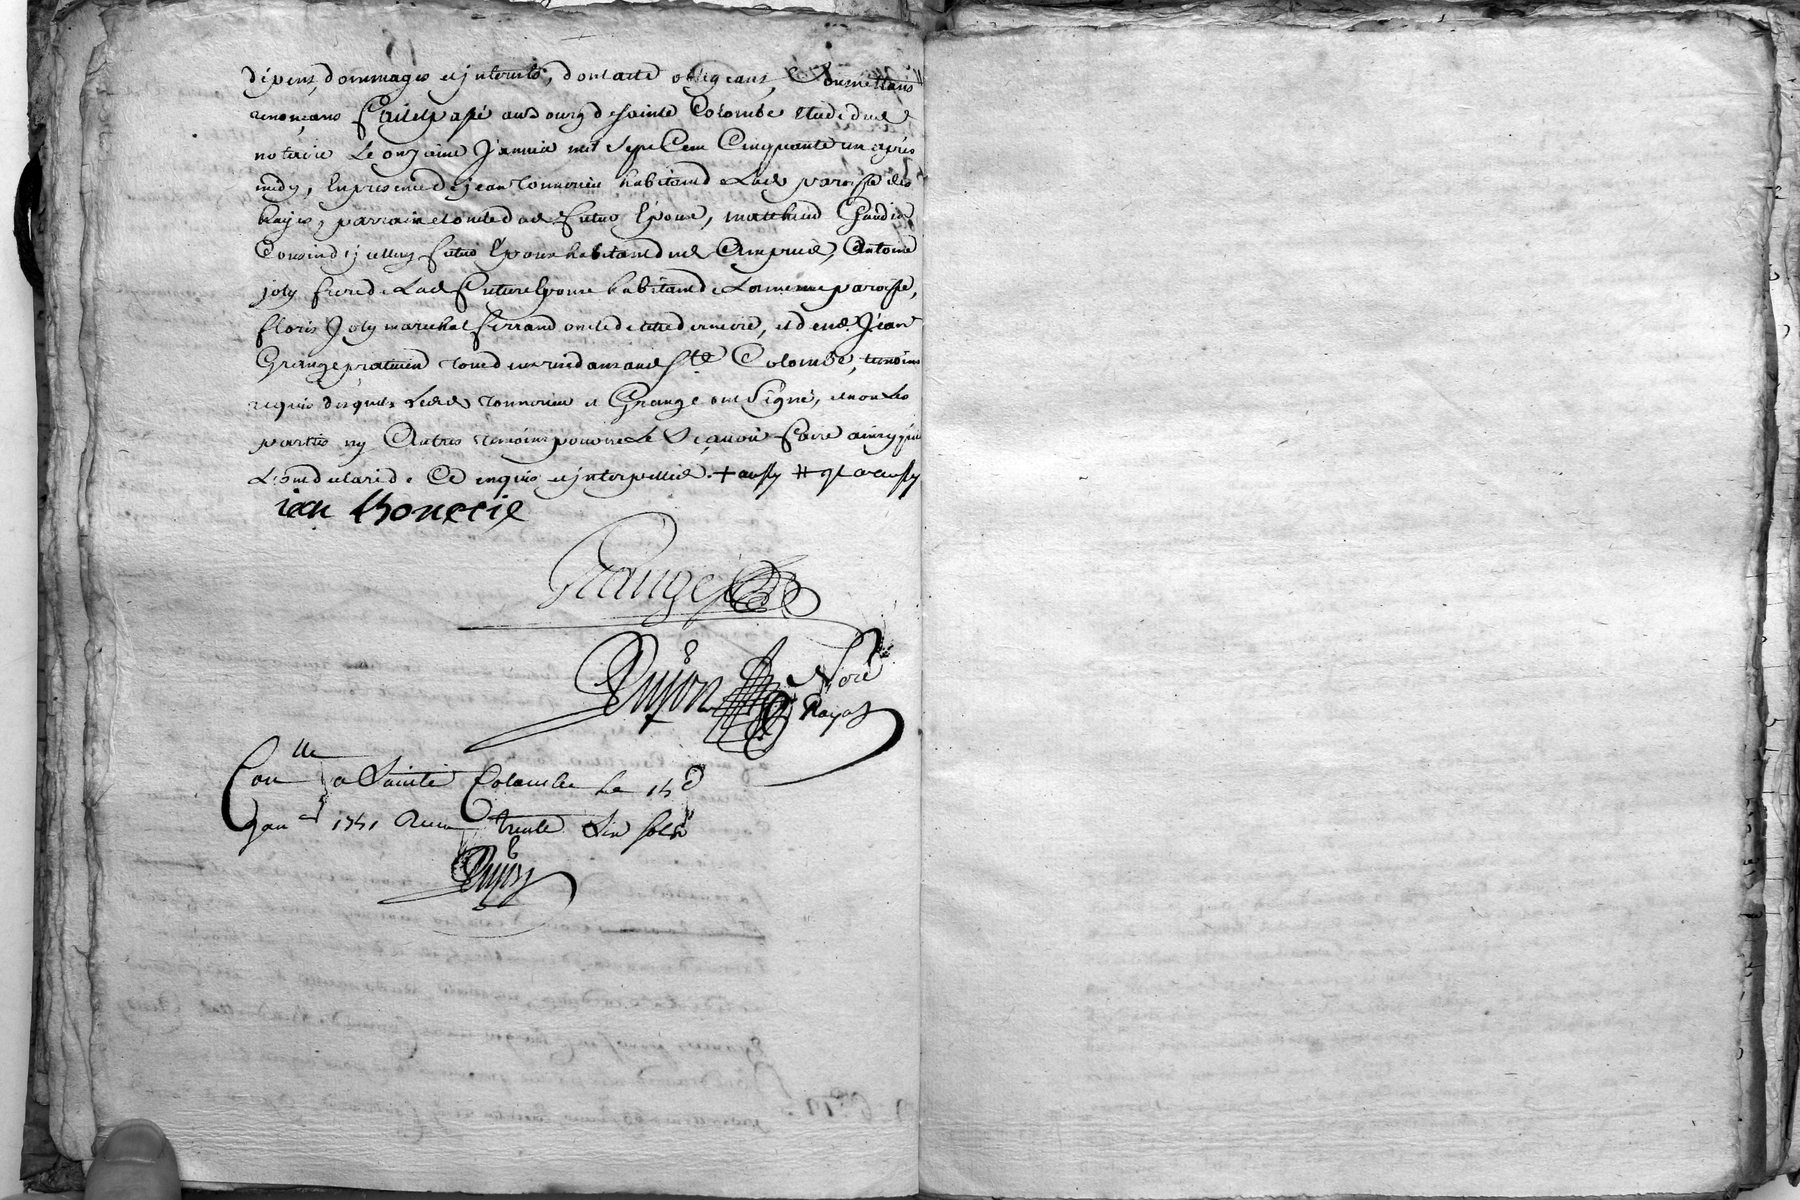 dépens, dommages et jnterests, dont acte obligeans, Soumettans
renonçans fait et passé au bourg de sainte Colombe étude dud.
notaire Le onzieme Janvier mil Sept Cent Cinquante un après
midy, En presence de jean Tonnerieu habitand Lad. paroisse des
hayes, parrain et oncle dud. futur Epoux, mathieu Gaudin
Cousin d'jcelluy futur Epoux habitand dud. Ampuid, Antoine
joly frere de Lad. future Epouse habitand de La meme paroisse,
floris Joly marechal ferrand oncle de cette derniere, et de me. Jean
Grange praticien tous deux residans aud. Ste. Colombe, temoins
requis desquels Lesd. Tonnerieu et Grange ont Signé, et non Les
parties ny Autres temoins pour ne Le Sçavoir faire ainsy qu'ils
L'ont declaré de Ce enquis et jnterpellés. + aussy # et aussy
ian
Grange
Dujon Nore
Royal
Conlle a Sainte Colombe Le 15e
Janer 1751 Recu trente Six sols
Dujon